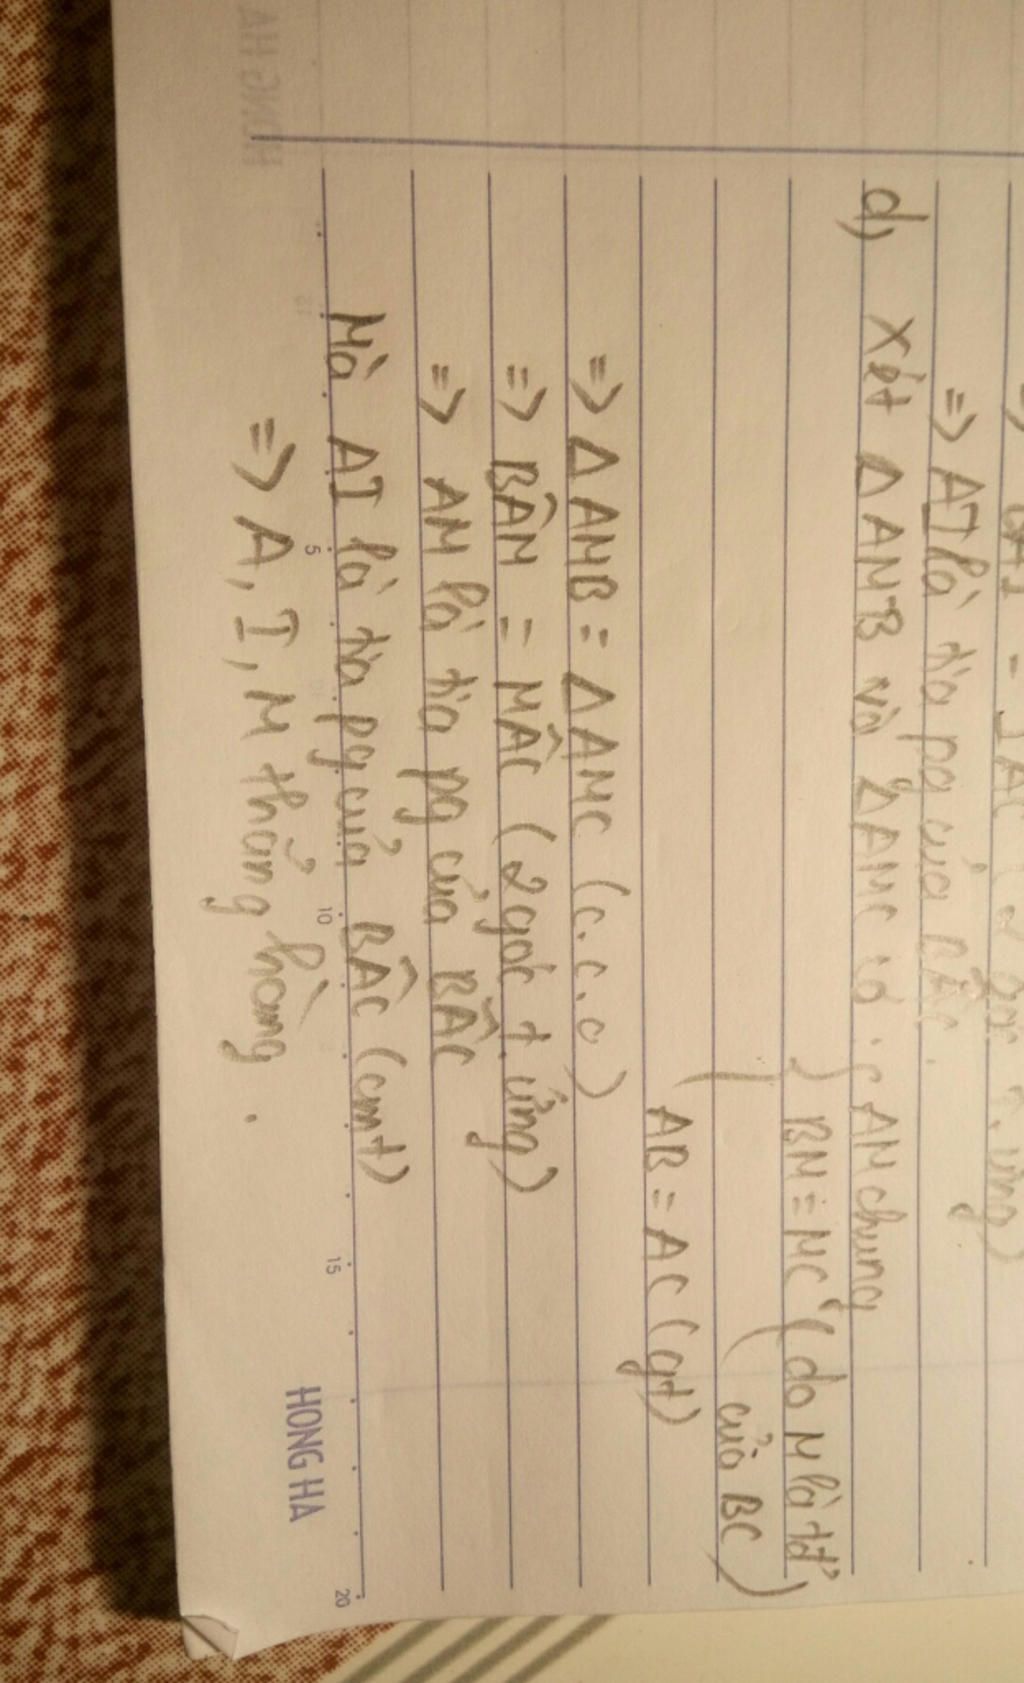 = IAC (2 góc t. ứng)
=> AI là tia pg của BÂC.
d, xét Δ AMB và Δ AMC có : { AM chung
BM = MC (do M là tđ
của BC)
AB = AC (gt)
=> Δ AMB = Δ AMC (c.c.c)
=> BÂM = MÂC (2 góc t. ứng)
=> AM là tia pg của BÂC
Mà AI là tia pg của BÂC (cmt)
=> A, I, M thẳng hàng.
5 10 15 20
HONG HA